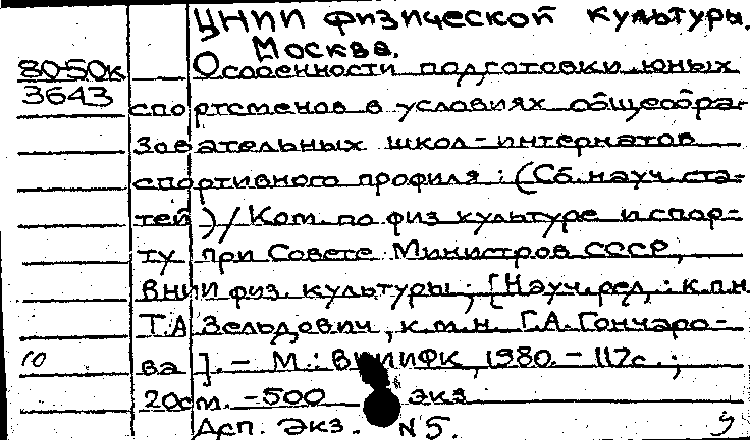 ЦНИИ физической культуры.
Москва.
80-50к Особенности подготовки юных
3643 спортсменов в условиях общеобра-
зовательных школ-интернатов
спортивного профиля: (Сб. науч. ста-
тей) / Ком. по физ культуре и спор-
ту при Совете Министров СССР,
ВНИИ физ. культуры; [Науч. ред.: к.п.н
Т.А Зельдович, к.м.н. Г.А. Гончаро-
10 ва]. - М.: ВНИИФК, 1980. - 117с.;
20см. - 500 экз
Асп. экз. N5. 9